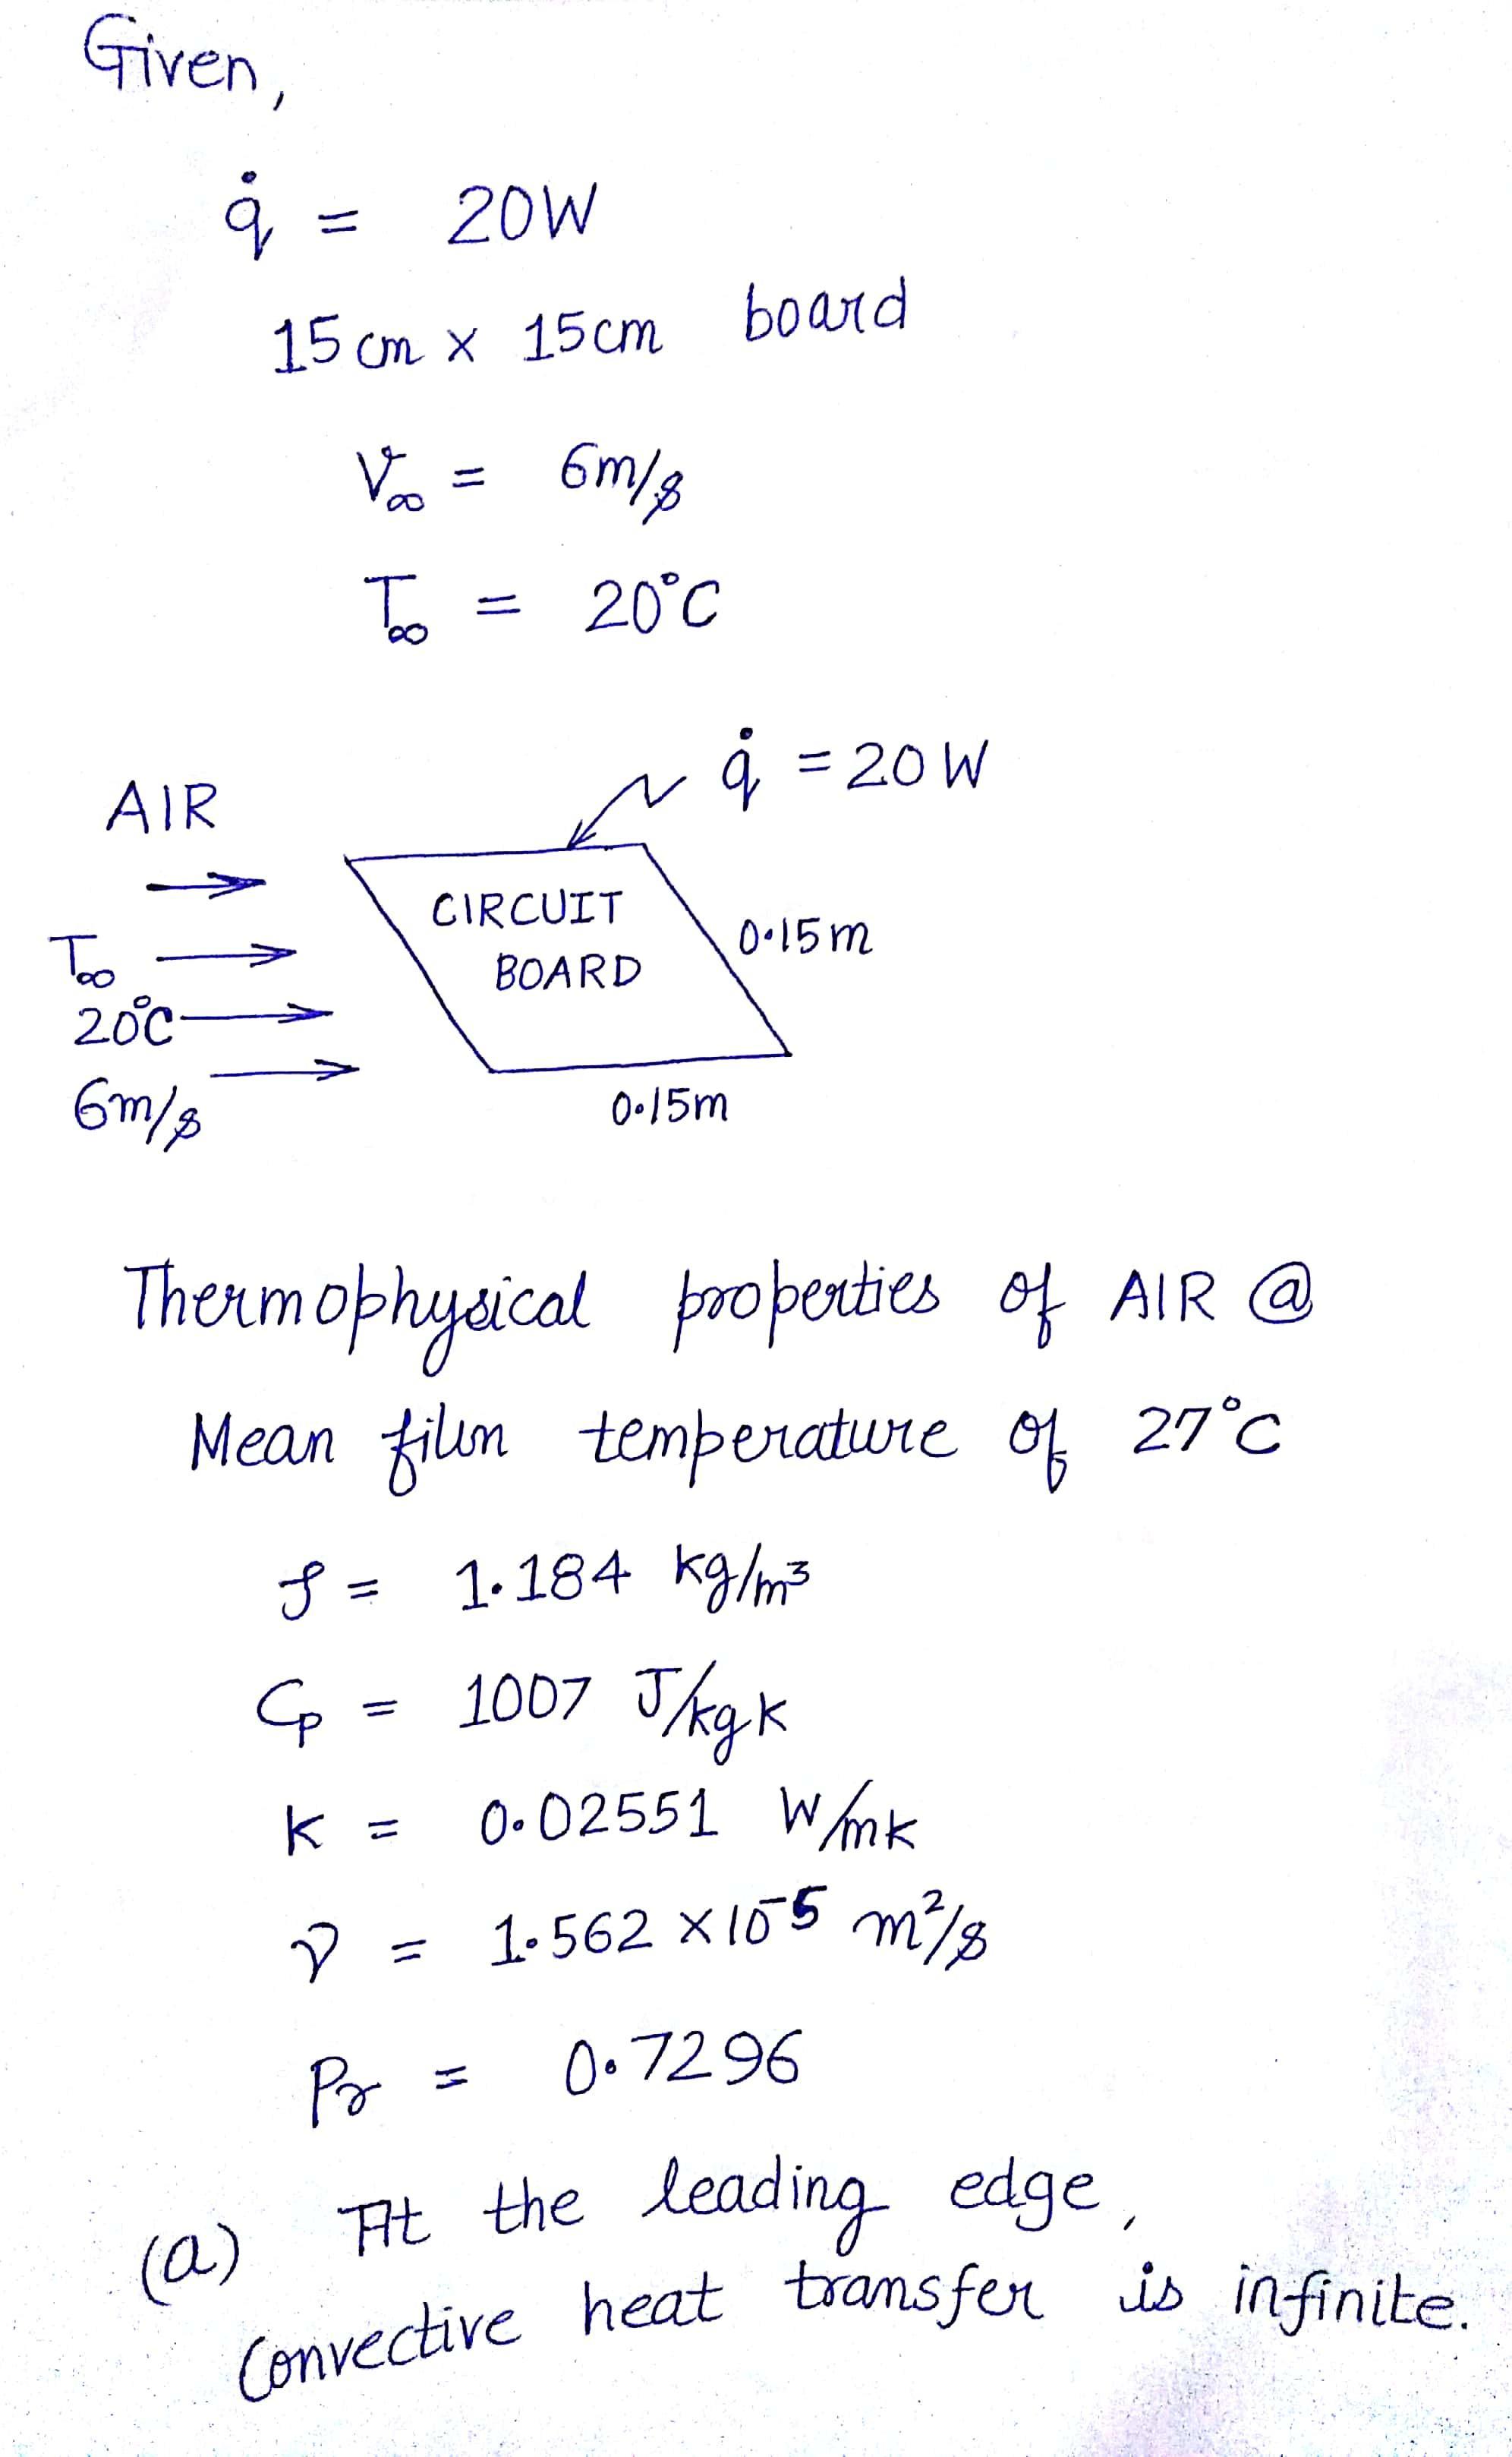 Given,
q̇ = 20W
15cm x 15cm board
V∞ = 6m/s
T∞ = 20°C
q̇ = 20W
AIR
CIRCUIT
BOARD
0.15m
T∞
20°C
6m/s
0.15m
Thermophysical properties of AIR @
Mean film temperature of 27°C
ρ = 1.184 kg/m³
Cp = 1007 J/kgK
K = 0.02551 W/mK
ν = 1.562 x 10⁻⁵ m²/s
Pr = 0.7296
(a) At the leading edge,
Convective heat transfer is infinite.